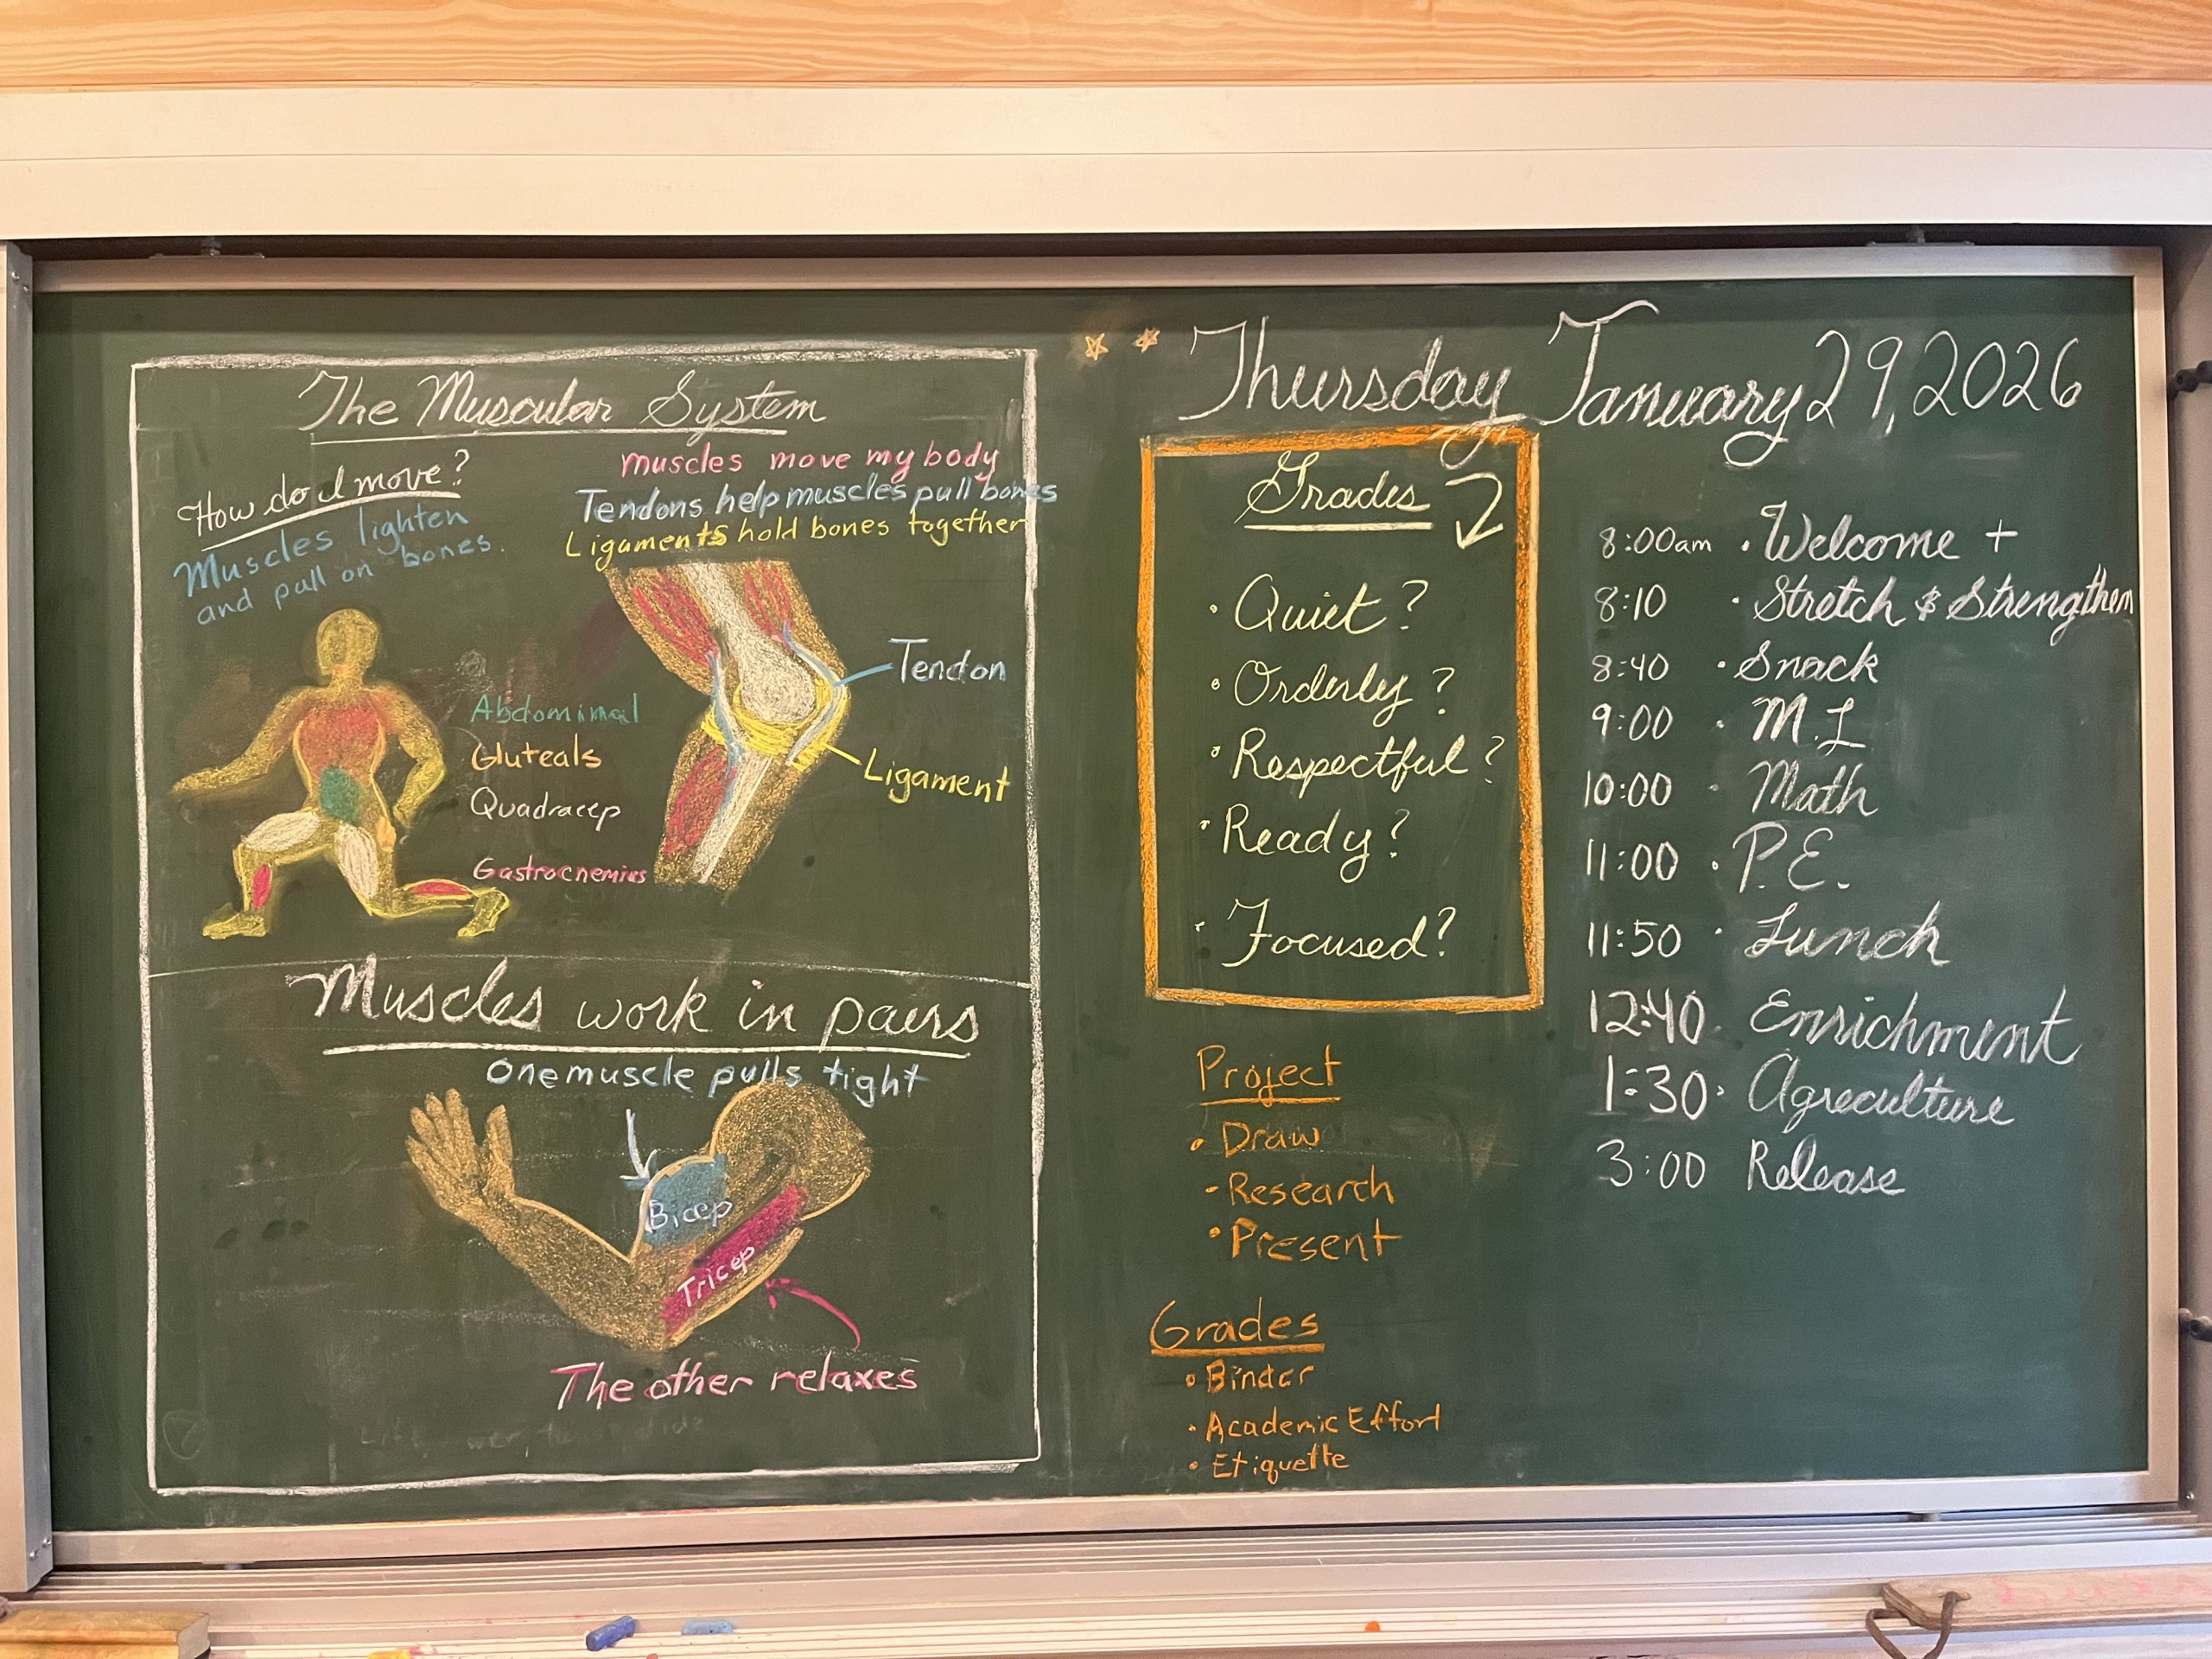 The Muscular System
How do I move?
Muscles lighten
and pull on bones.
muscles move my body
Tendons help muscles pull bones
Ligaments hold bones together
Tendon
Ligament
Abdominal
Gluteals
Quadracep
Gastrocnemius
Muscles work in pairs
One muscle pulls tight
Bicep
Tricep
The other relaxes
Thursday January 29, 2026
Grades
• Quiet?
• Orderly?
• Respectful?
• Ready?
• Focused?
Project
• Draw
- Research
• Present
Grades
• Binder
• Academic Effort
• Etiquette
8:00am • Welcome +
8:10 • Stretch & Strengthen
8:40 • Snack
9:00 • M.L
10:00 • Math
11:00 • P.E.
11:50 • Lunch
12:40 • Enrichment
1:30 • Agreculture
3:00 Release